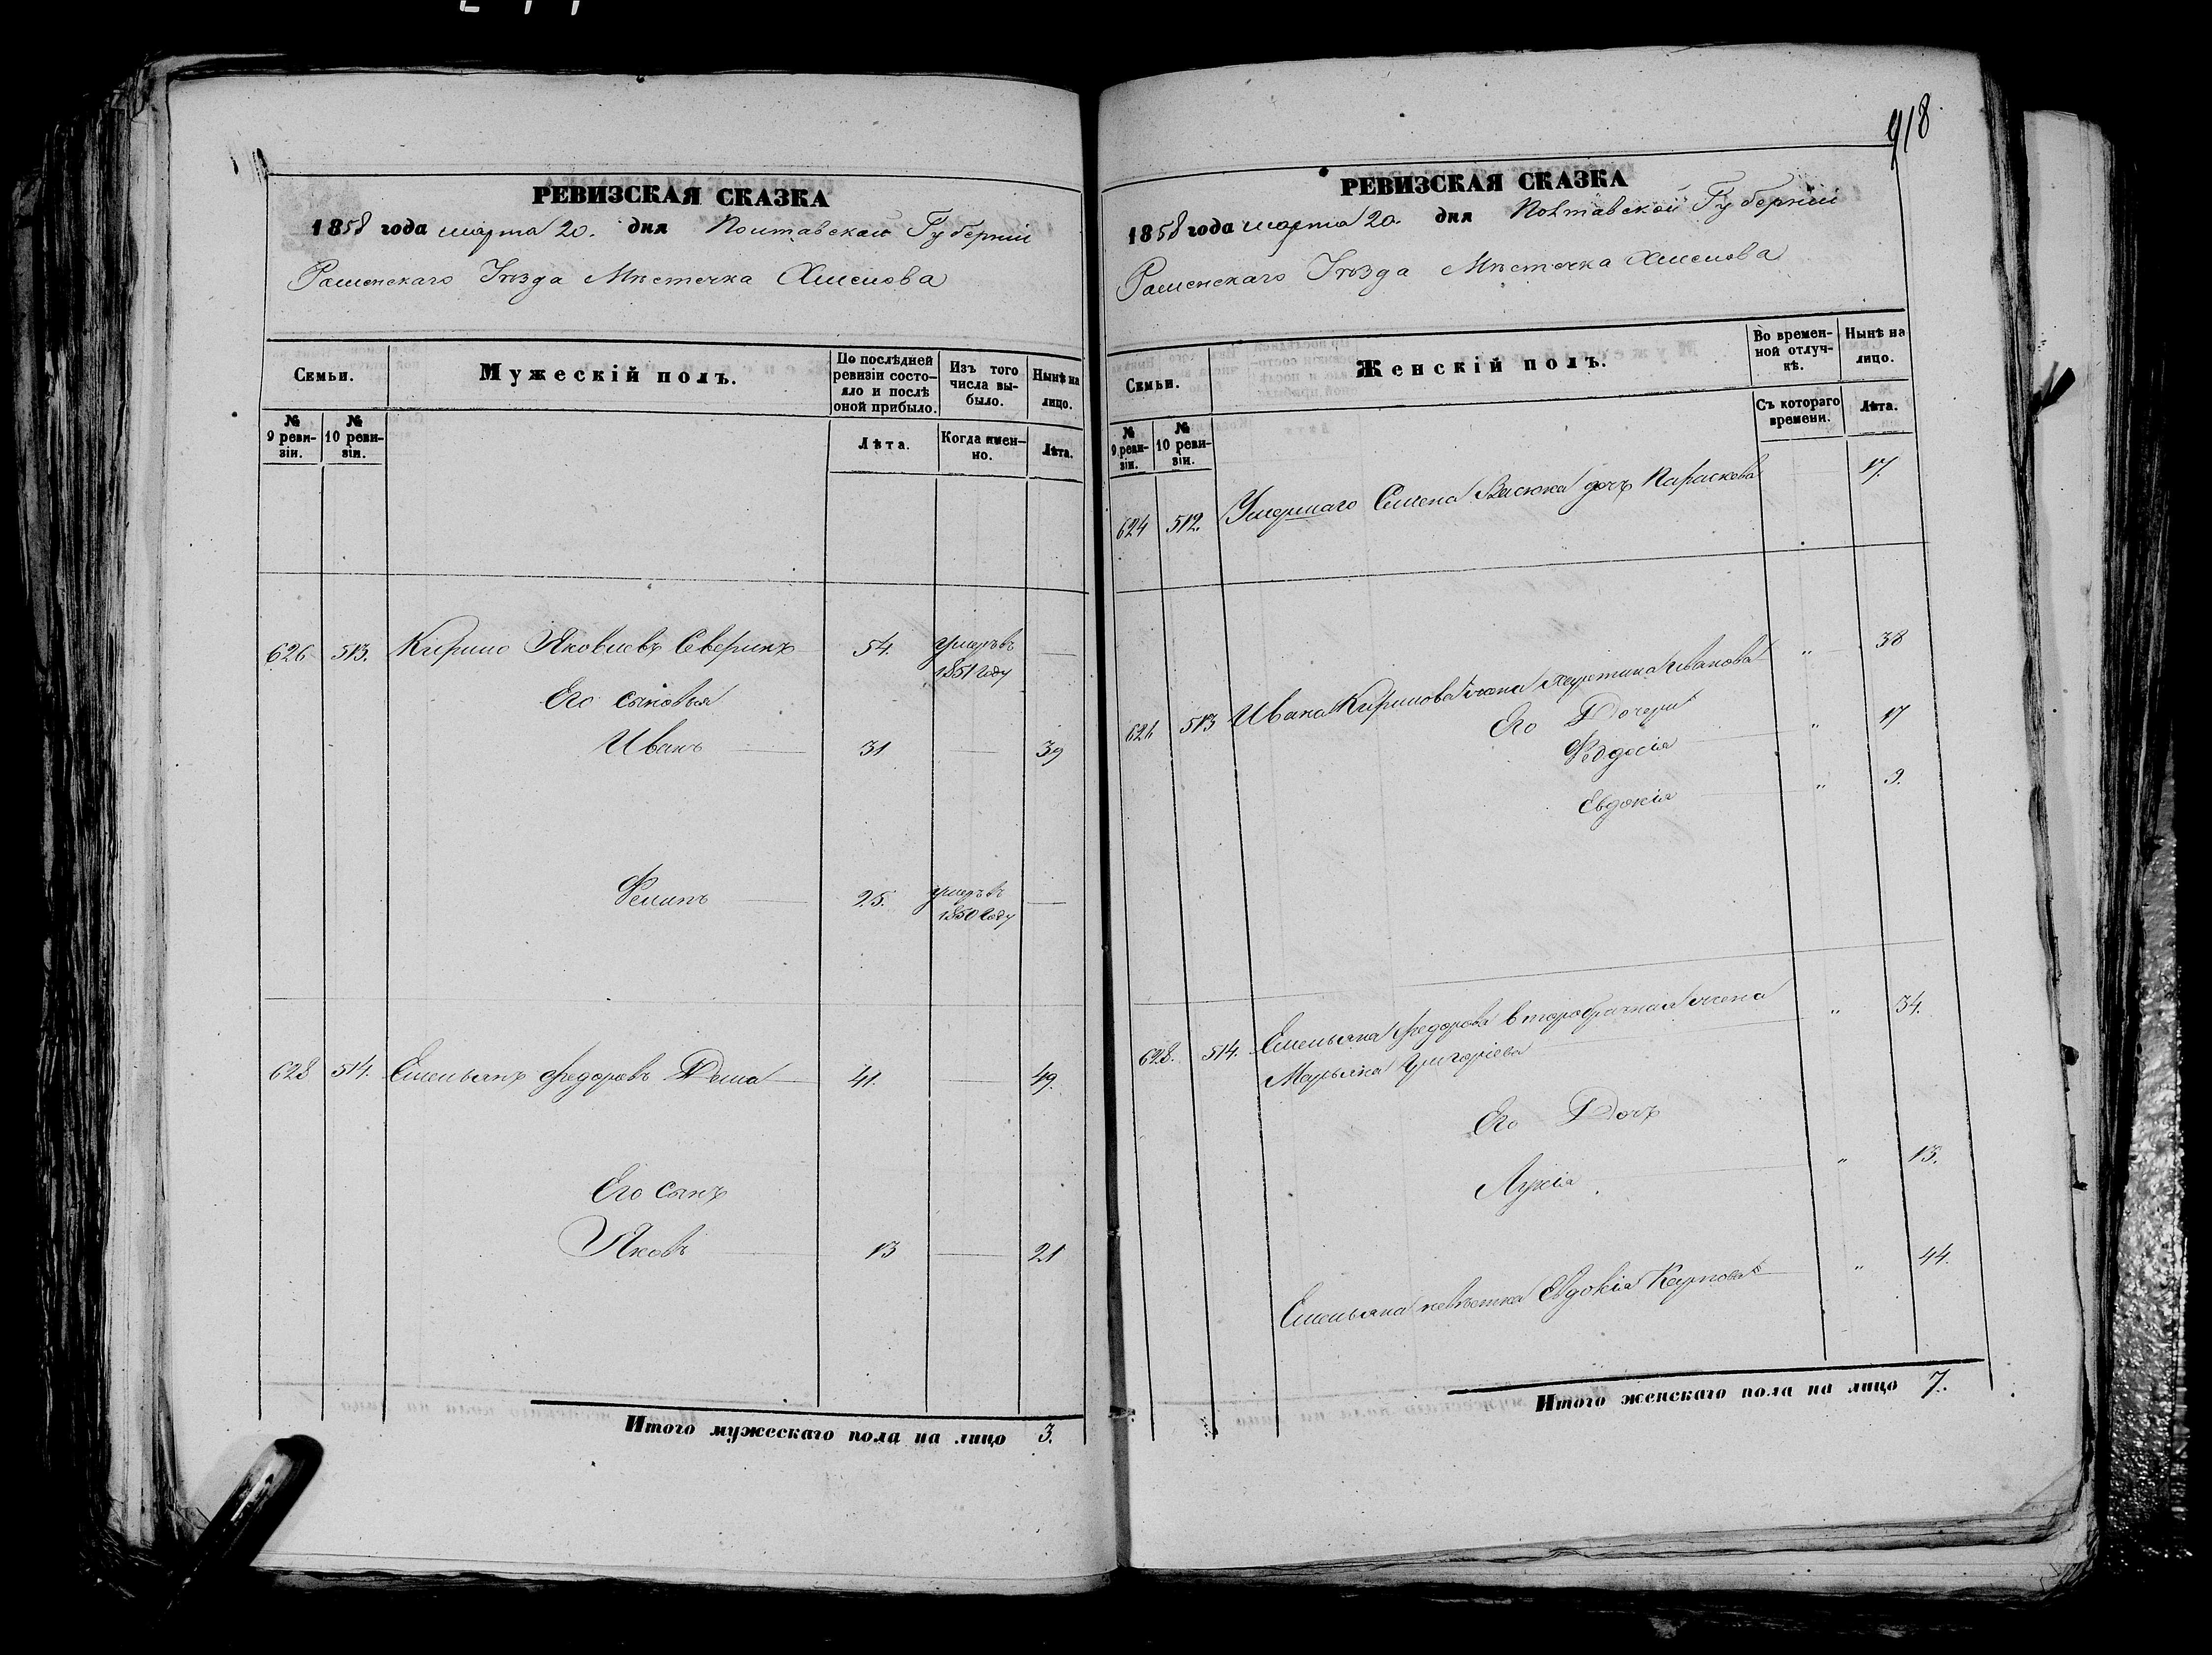 918
РЕВИЗСКАЯ СКАЗКА
1858 года марта 20. дня Полтавской Губерніи
Роменскаго Уѣзда Мѣстечка Хмелова
Семьи.
Мужескій полъ.
По послѣдней ревизіи состояло и послѣ оной прибыло.
Изъ того числа выбыло.
Нынѣ на лицо.
№ 9 ревизіи.
№ 10 ревизіи.
Лѣта.
Когда именно.
Лѣта.
626 513. Кирило Яковлевъ Северинъ 54. умеръ въ 1851 году —
Его сыновья
Иванъ 31 — 39
Филипъ 25. умеръ въ 1850 году —
628 514. Емельянъ Федоровъ Дема 41. — 49.
Его сынъ
Яковъ 13 — 21
Итого мужескаго пола на лицо 3.
РЕВИЗСКАЯ СКАЗКА
1858 года марта 20. дня Полтавской Губерніи
Роменскаго Уѣзда Мѣстечка Хмелова
Семьи.
Женскій полъ.
Во временной отлучкѣ.
Нынѣ на лицо.
№ 9 ревизіи.
№ 10 ревизіи.
Съ котораго времени.
Лѣта.
624 512. Умершаго Семена дочь Параскева 17.
626 513 Ивана Кирилова жена Иванова " 38
Его Дочери
Феодосія " 17
Евдокія " 9.
628. 514. Емельяна Федорова второбрачная жена " 34.
Марьяна Григоріева
Его Дочь
Лукія " 13.
Емельяна невѣстка Евдокія Карпова " 44.
Итого женскаго пола на лицо 7.